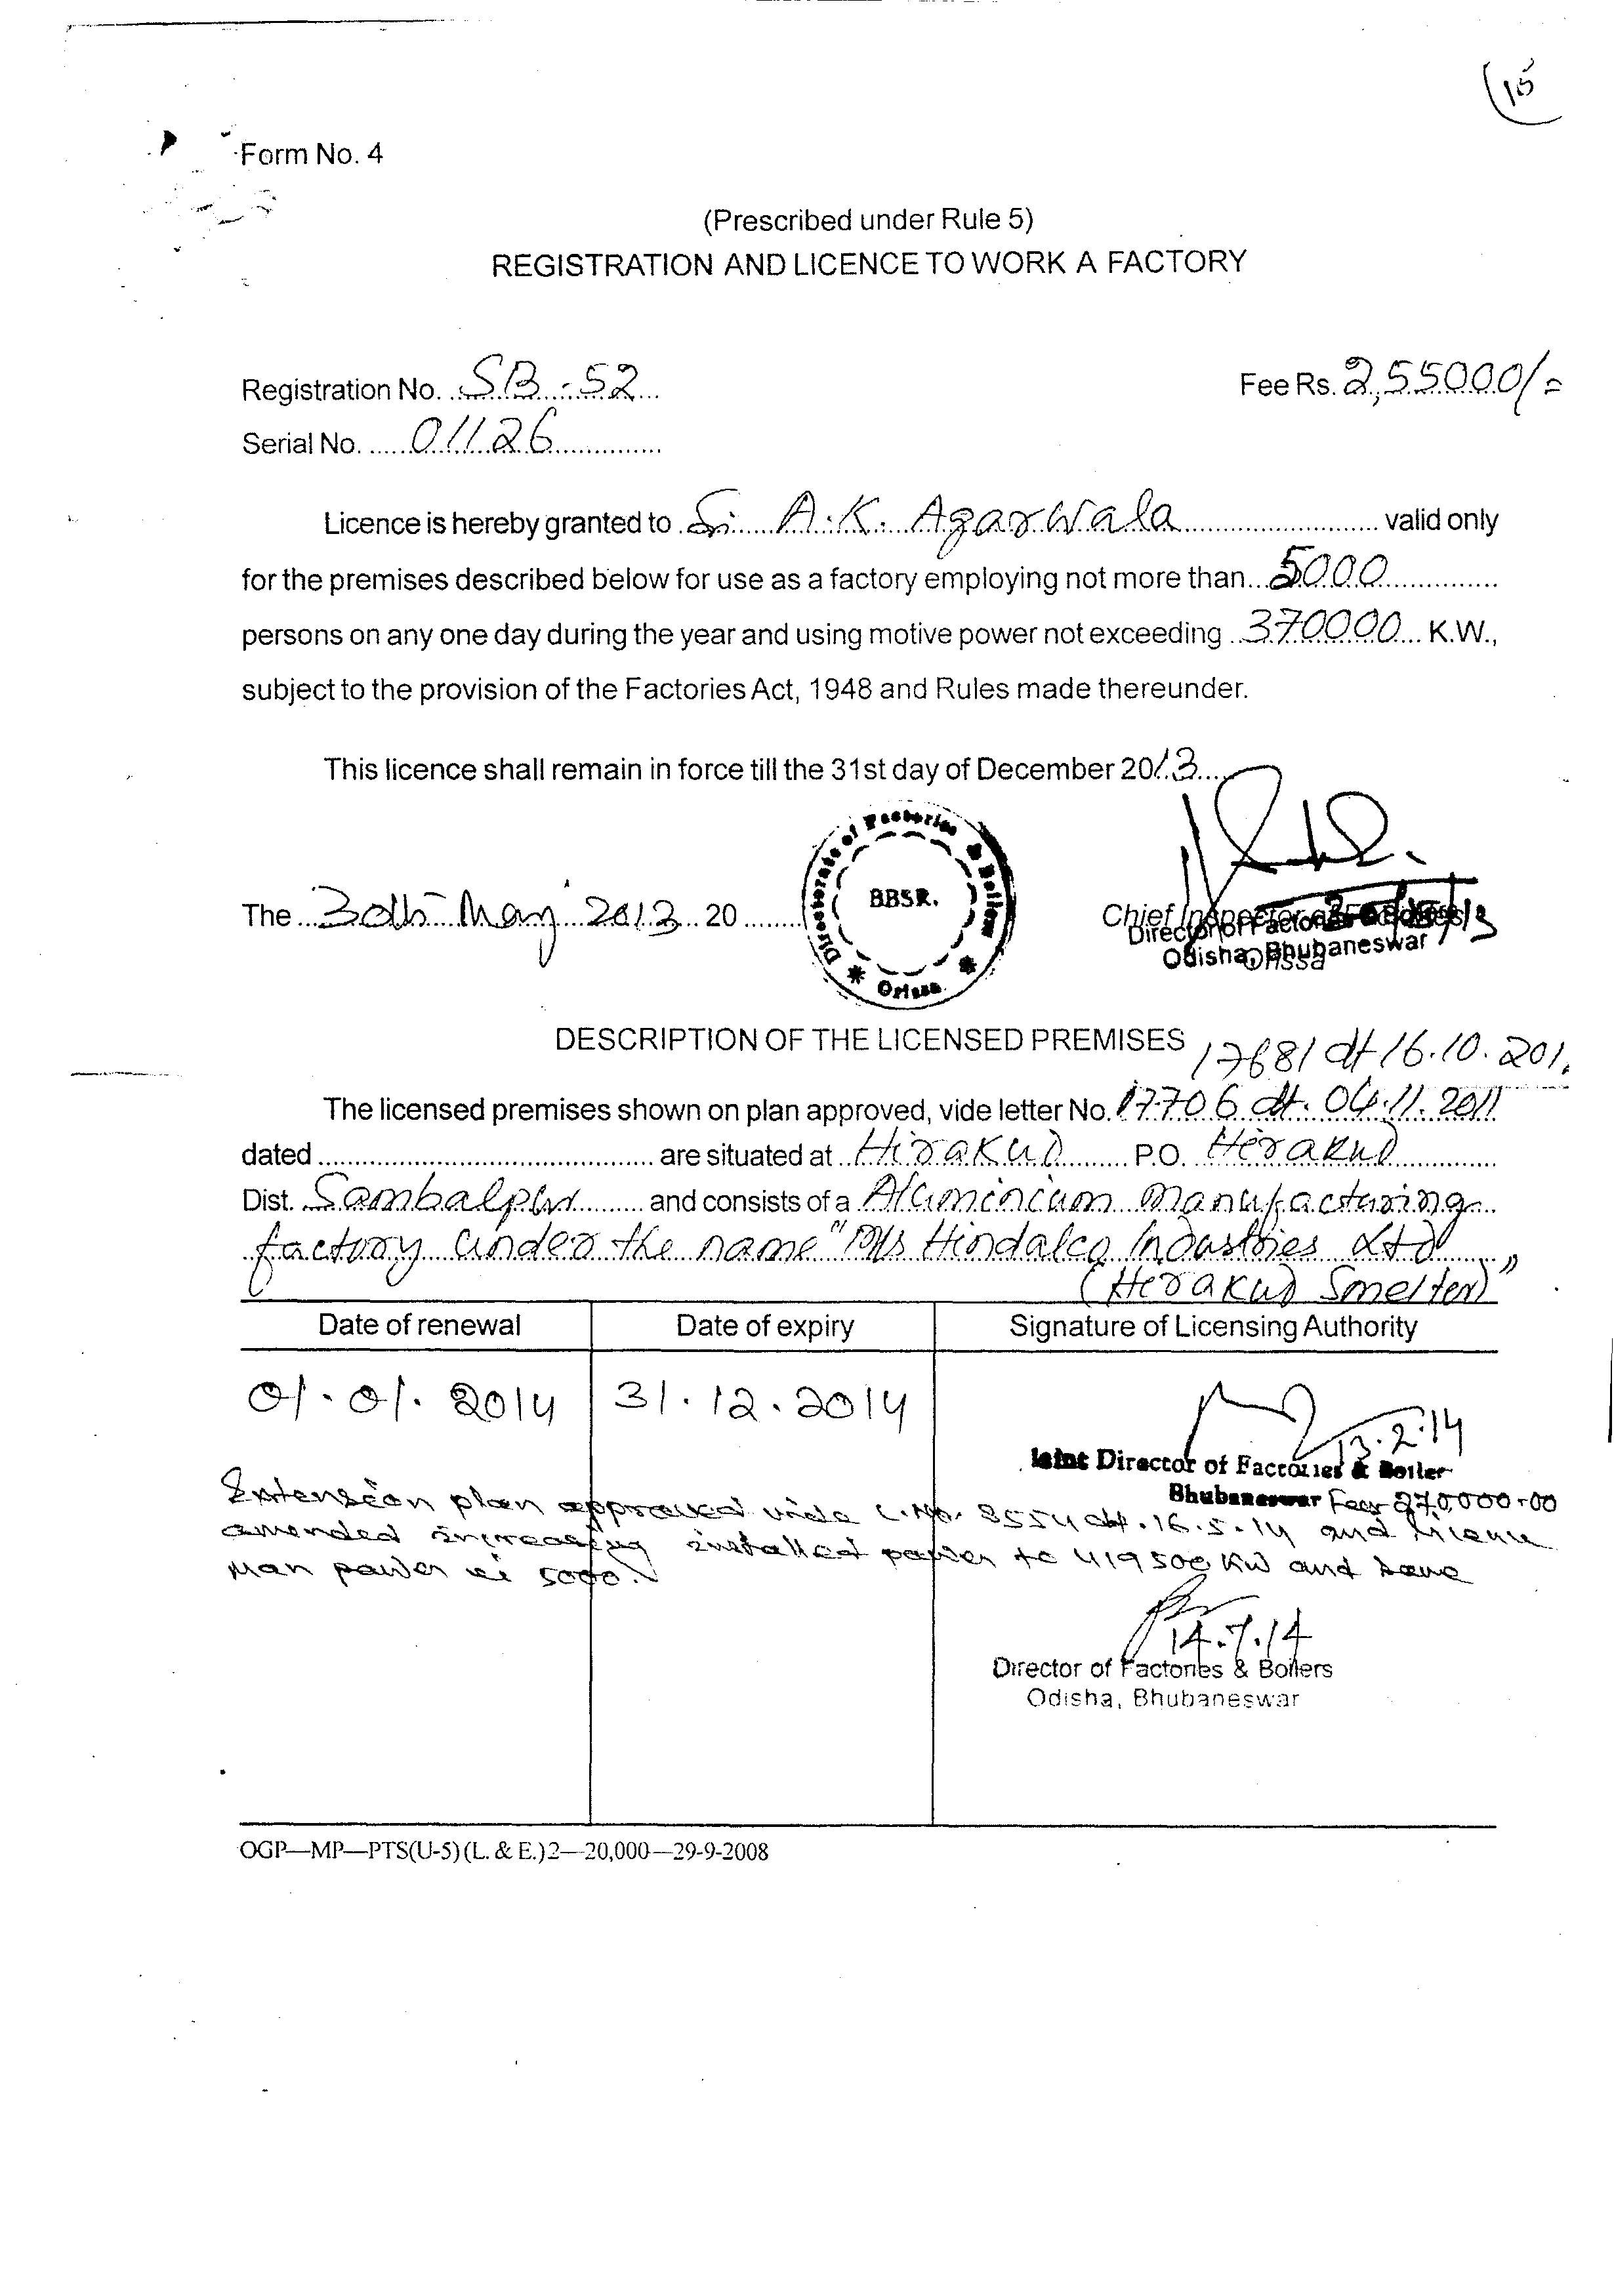 15
Form No. 4
(Prescribed under Rule 5)
REGISTRATION AND LICENCE TO WORK A FACTORY
Registration No. SB-52 Fee Rs. 2,55000/=
Serial No. 01126
Licence is hereby granted to Sri A.K. Agarwala valid only
for the premises described below for use as a factory employing not more than 5000
persons on any one day during the year and using motive power not exceeding 370000 K.W.,
subject to the provision of the Factories Act, 1948 and Rules made thereunder.
This licence shall remain in force till the 31st day of December 2013
The 30th May 2013 20
Directorate of Factories & Boilers
BBSR.
Orissa
Chief Inspector of Factories
Director of Factories & Boilers
Odisha, Bhubaneswar
Orissa
DESCRIPTION OF THE LICENSED PREMISES 17681 dt 16.10.201
The licensed premises shown on plan approved, vide letter No. 17706 dt. 04.11.2011
dated are situated at Hirakud P.O. Hirakud
Dist. Sambalpur and consists of a Aluminium manufacturing
factory under the name "M/s Hindalco Industries Ltd
(Hirakud Smelter)"
Date of renewal Date of expiry Signature of Licensing Authority
01.01.2014 31.12.2014
13.2.14
Joint Director of Factories & Boiler
Bhubaneswar Fees 270000-00
Extension plan approved vide L.No. 8554 dt. 16.5.14 and licence
amended increasing installed power to 419500 KW and same
man power ie 5000.
14.7.14
Director of Factories & Boilers
Odisha, Bhubaneswar
OGP—MP—PTS(U-5) (L. & E.) 2—20,000—29-9-2008